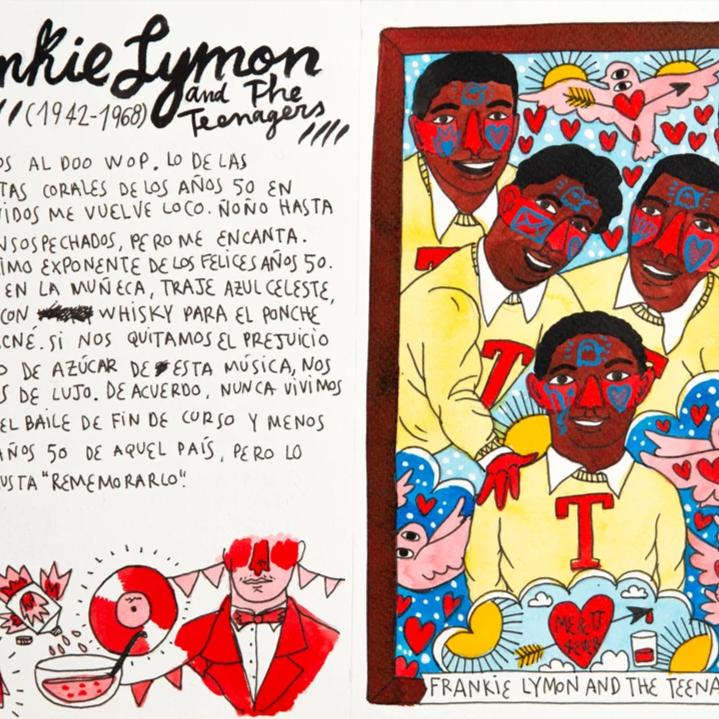 nkie Lymon
and The
(1942-1968)
Teenagers
OS AL DOO WOP. LO DE LAS
TAS CORALES DE LOS AÑOS 50 EN
IDOS ME VUELVE LOCO. ÑOÑO HASTA
NSOSPECHADOS, PERO ME ENCANTA.
IMO EXPONENTE DE LOS FELICES AÑOS 50.
EN LA MUÑECA, TRAJE AZUL CELESTE,
CON WHISKY PARA EL PONCHE
CNÉ. SI NOS QUITAMOS EL PREJUICIO
O DE AZÚCAR DE ESTA MÚSICA, NOS
S DE LUJO. DE ACUERDO, NUNCA VIVIMOS
EL BAILE DE FIN DE CURSO Y MENOS
AÑOS 50 DE AQUEL PAÍS, PERO LO
USTA "REMEMORARLO".
T
T
4EVER
FRANKIE LYMON AND THE TEENA